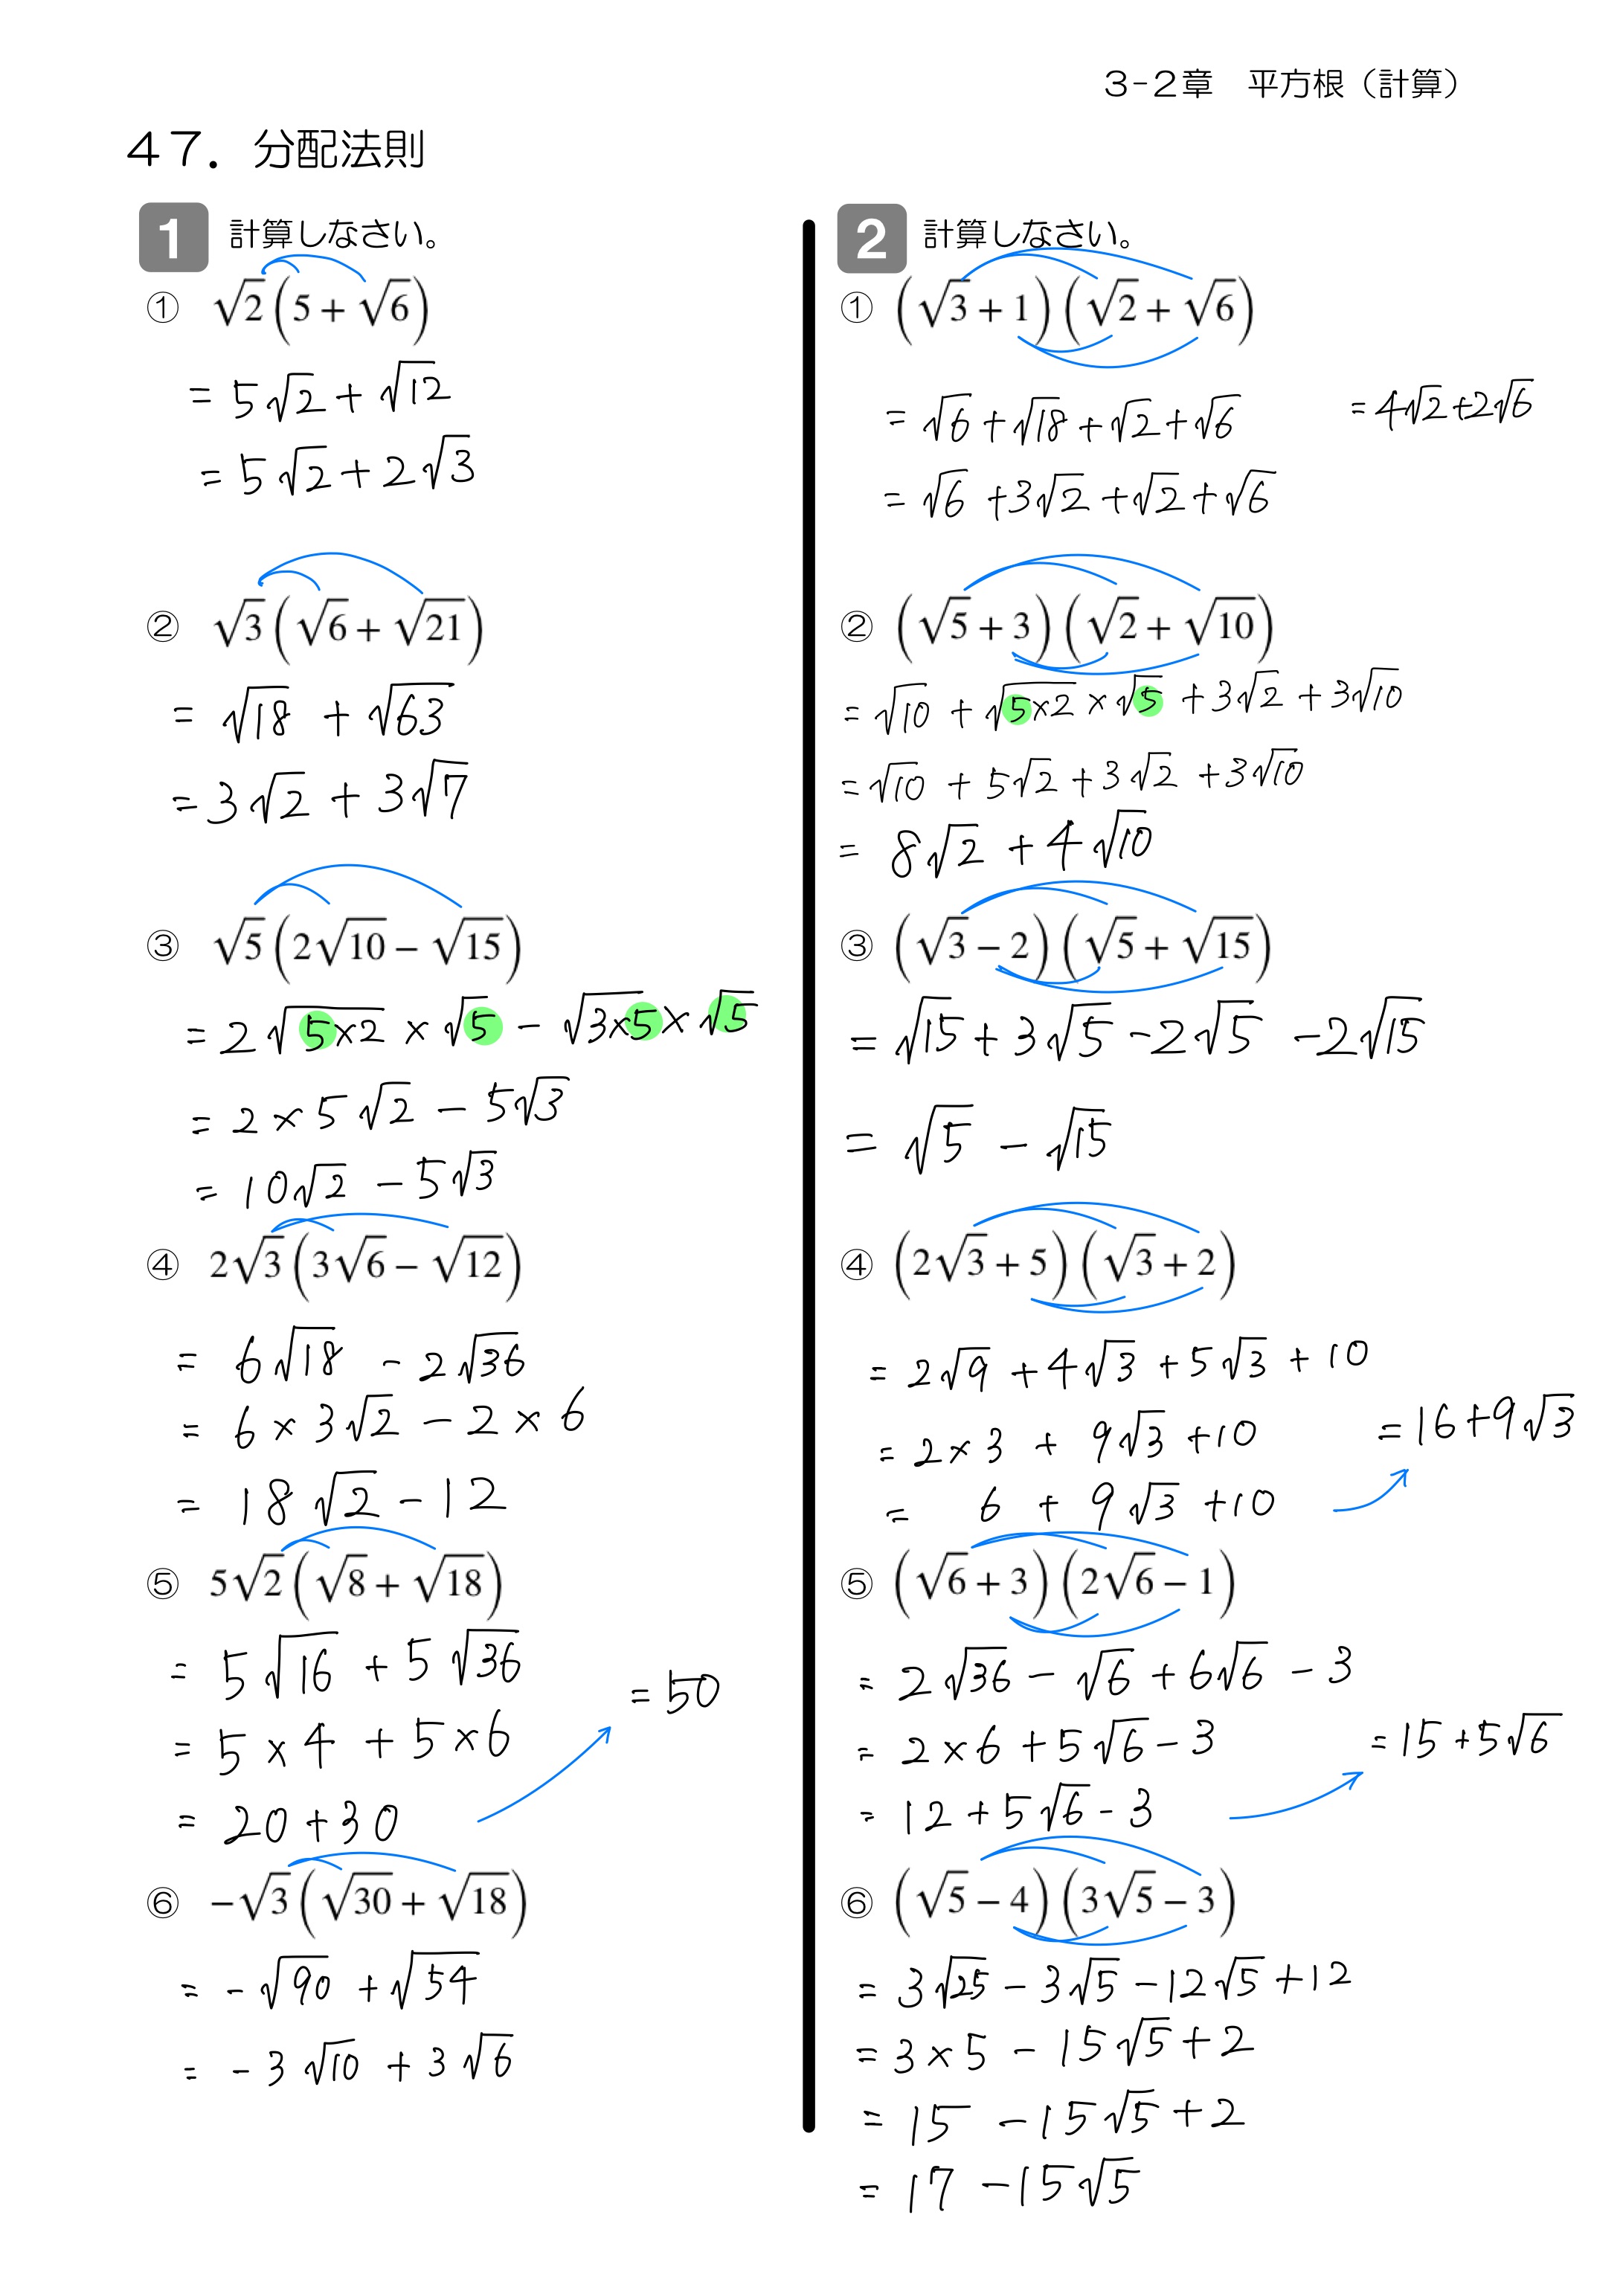 3-2章 平方根（計算）
47．分配法則
1 計算しなさい。
① √2(5+√6)
= 5√2+√12
= 5√2+2√3
② √3(√6+√21)
= √18 + √63
= 3√2 + 3√7
③ √5(2√10−√15)
= 2√5×2 × √5 − √3×5 × √5
= 2×5√2 − 5√3
= 10√2 − 5√3
④ 2√3(3√6−√12)
= 6√18 − 2√36
= 6×3√2 − 2×6
= 18√2 − 12
⑤ 5√2(√8+√18)
= 5√16 + 5√36
= 5×4 + 5×6
= 20+30
= 50
⑥ −√3(√30+√18)
= −√90 + √54
= −3√10 + 3√6
2 計算しなさい。
① (√3+1)(√2+√6)
= √6+√18+√2+√6
= √6+3√2+√2+√6
= 4√2+2√6
② (√5+3)(√2+√10)
= √10 + √5×2 × √5 + 3√2 + 3√10
= √10 + 5√2 + 3√2 + 3√10
= 8√2 + 4√10
③ (√3−2)(√5+√15)
= √15 + 3√5 − 2√5 − 2√15
= √5 − √15
④ (2√3+5)(√3+2)
= 2√9 + 4√3 + 5√3 + 10
= 2×3 + 9√3 + 10
= 6 + 9√3 + 10
= 16+9√3
⑤ (√6+3)(2√6−1)
= 2√36 − √6 + 6√6 − 3
= 2×6 + 5√6 − 3
= 12 + 5√6 − 3
= 15+5√6
⑥ (√5−4)(3√5−3)
= 3√25 − 3√5 − 12√5 + 12
= 3×5 − 15√5 + 2
= 15 − 15√5 + 2
= 17 − 15√5